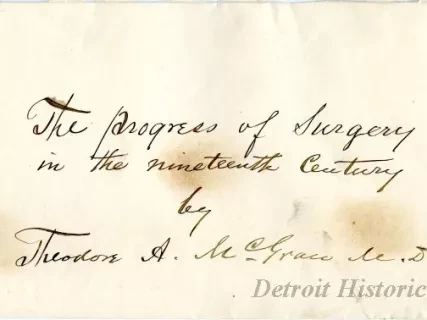 The progress of Surgery
in the nineteenth Century
by
Theodore A. McGraw M.D
Detroit Historic